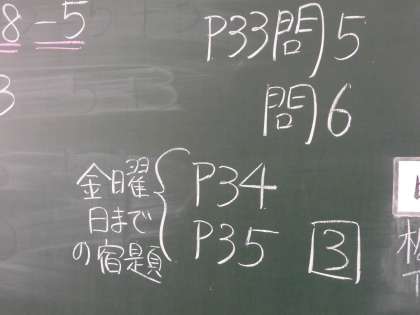 8 -5
3
P33問5
問6
金曜
日まで
の宿題
P34
P35 3